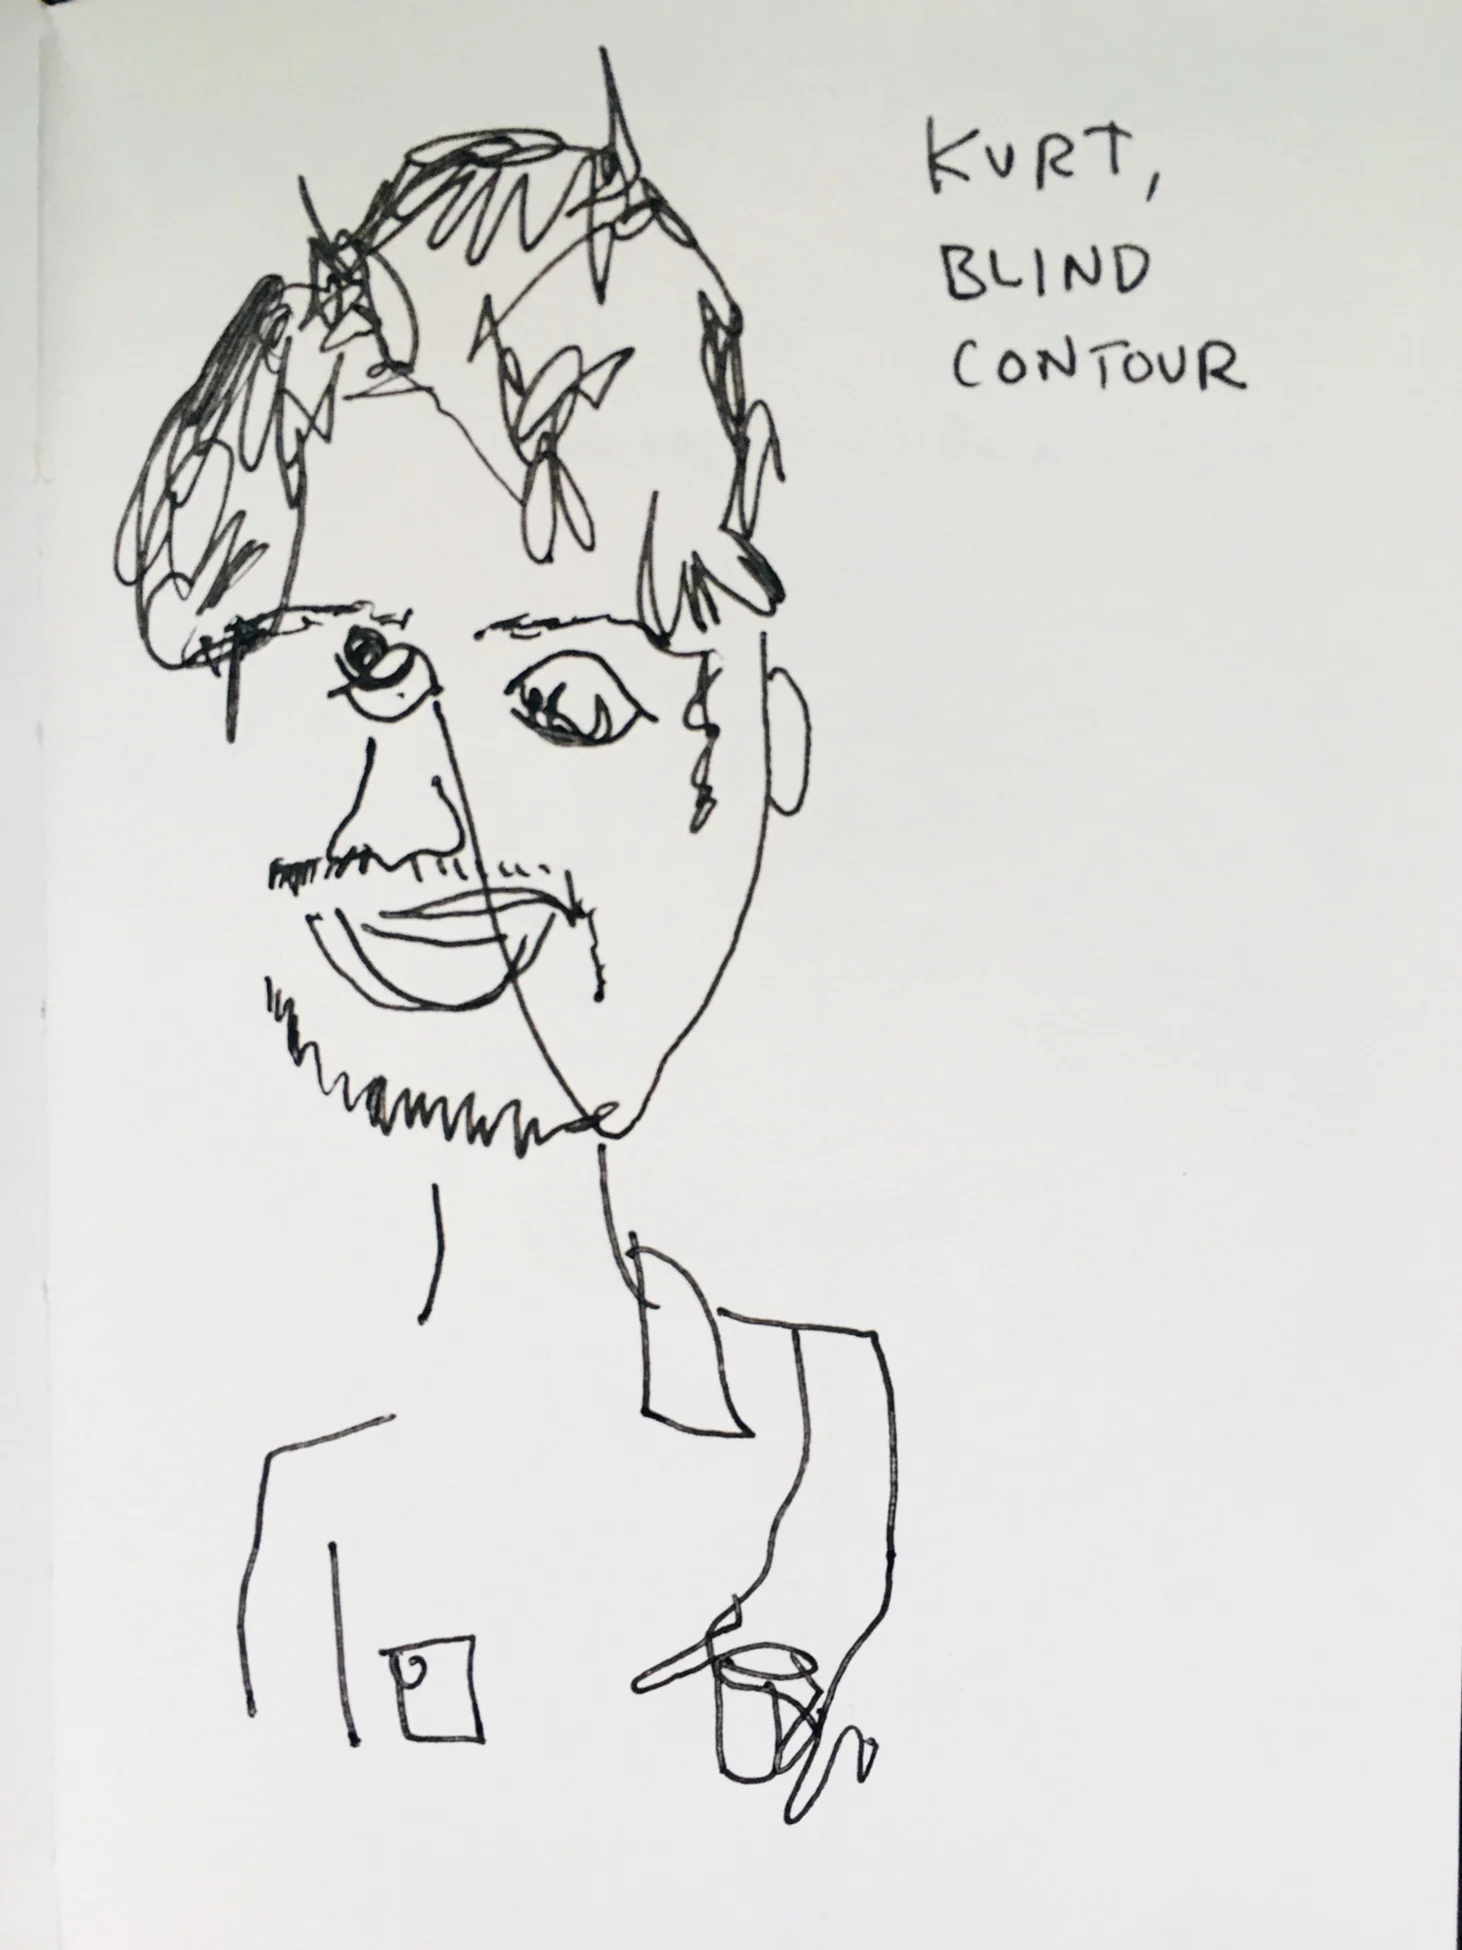 KURT,
BLIND
CONTOUR